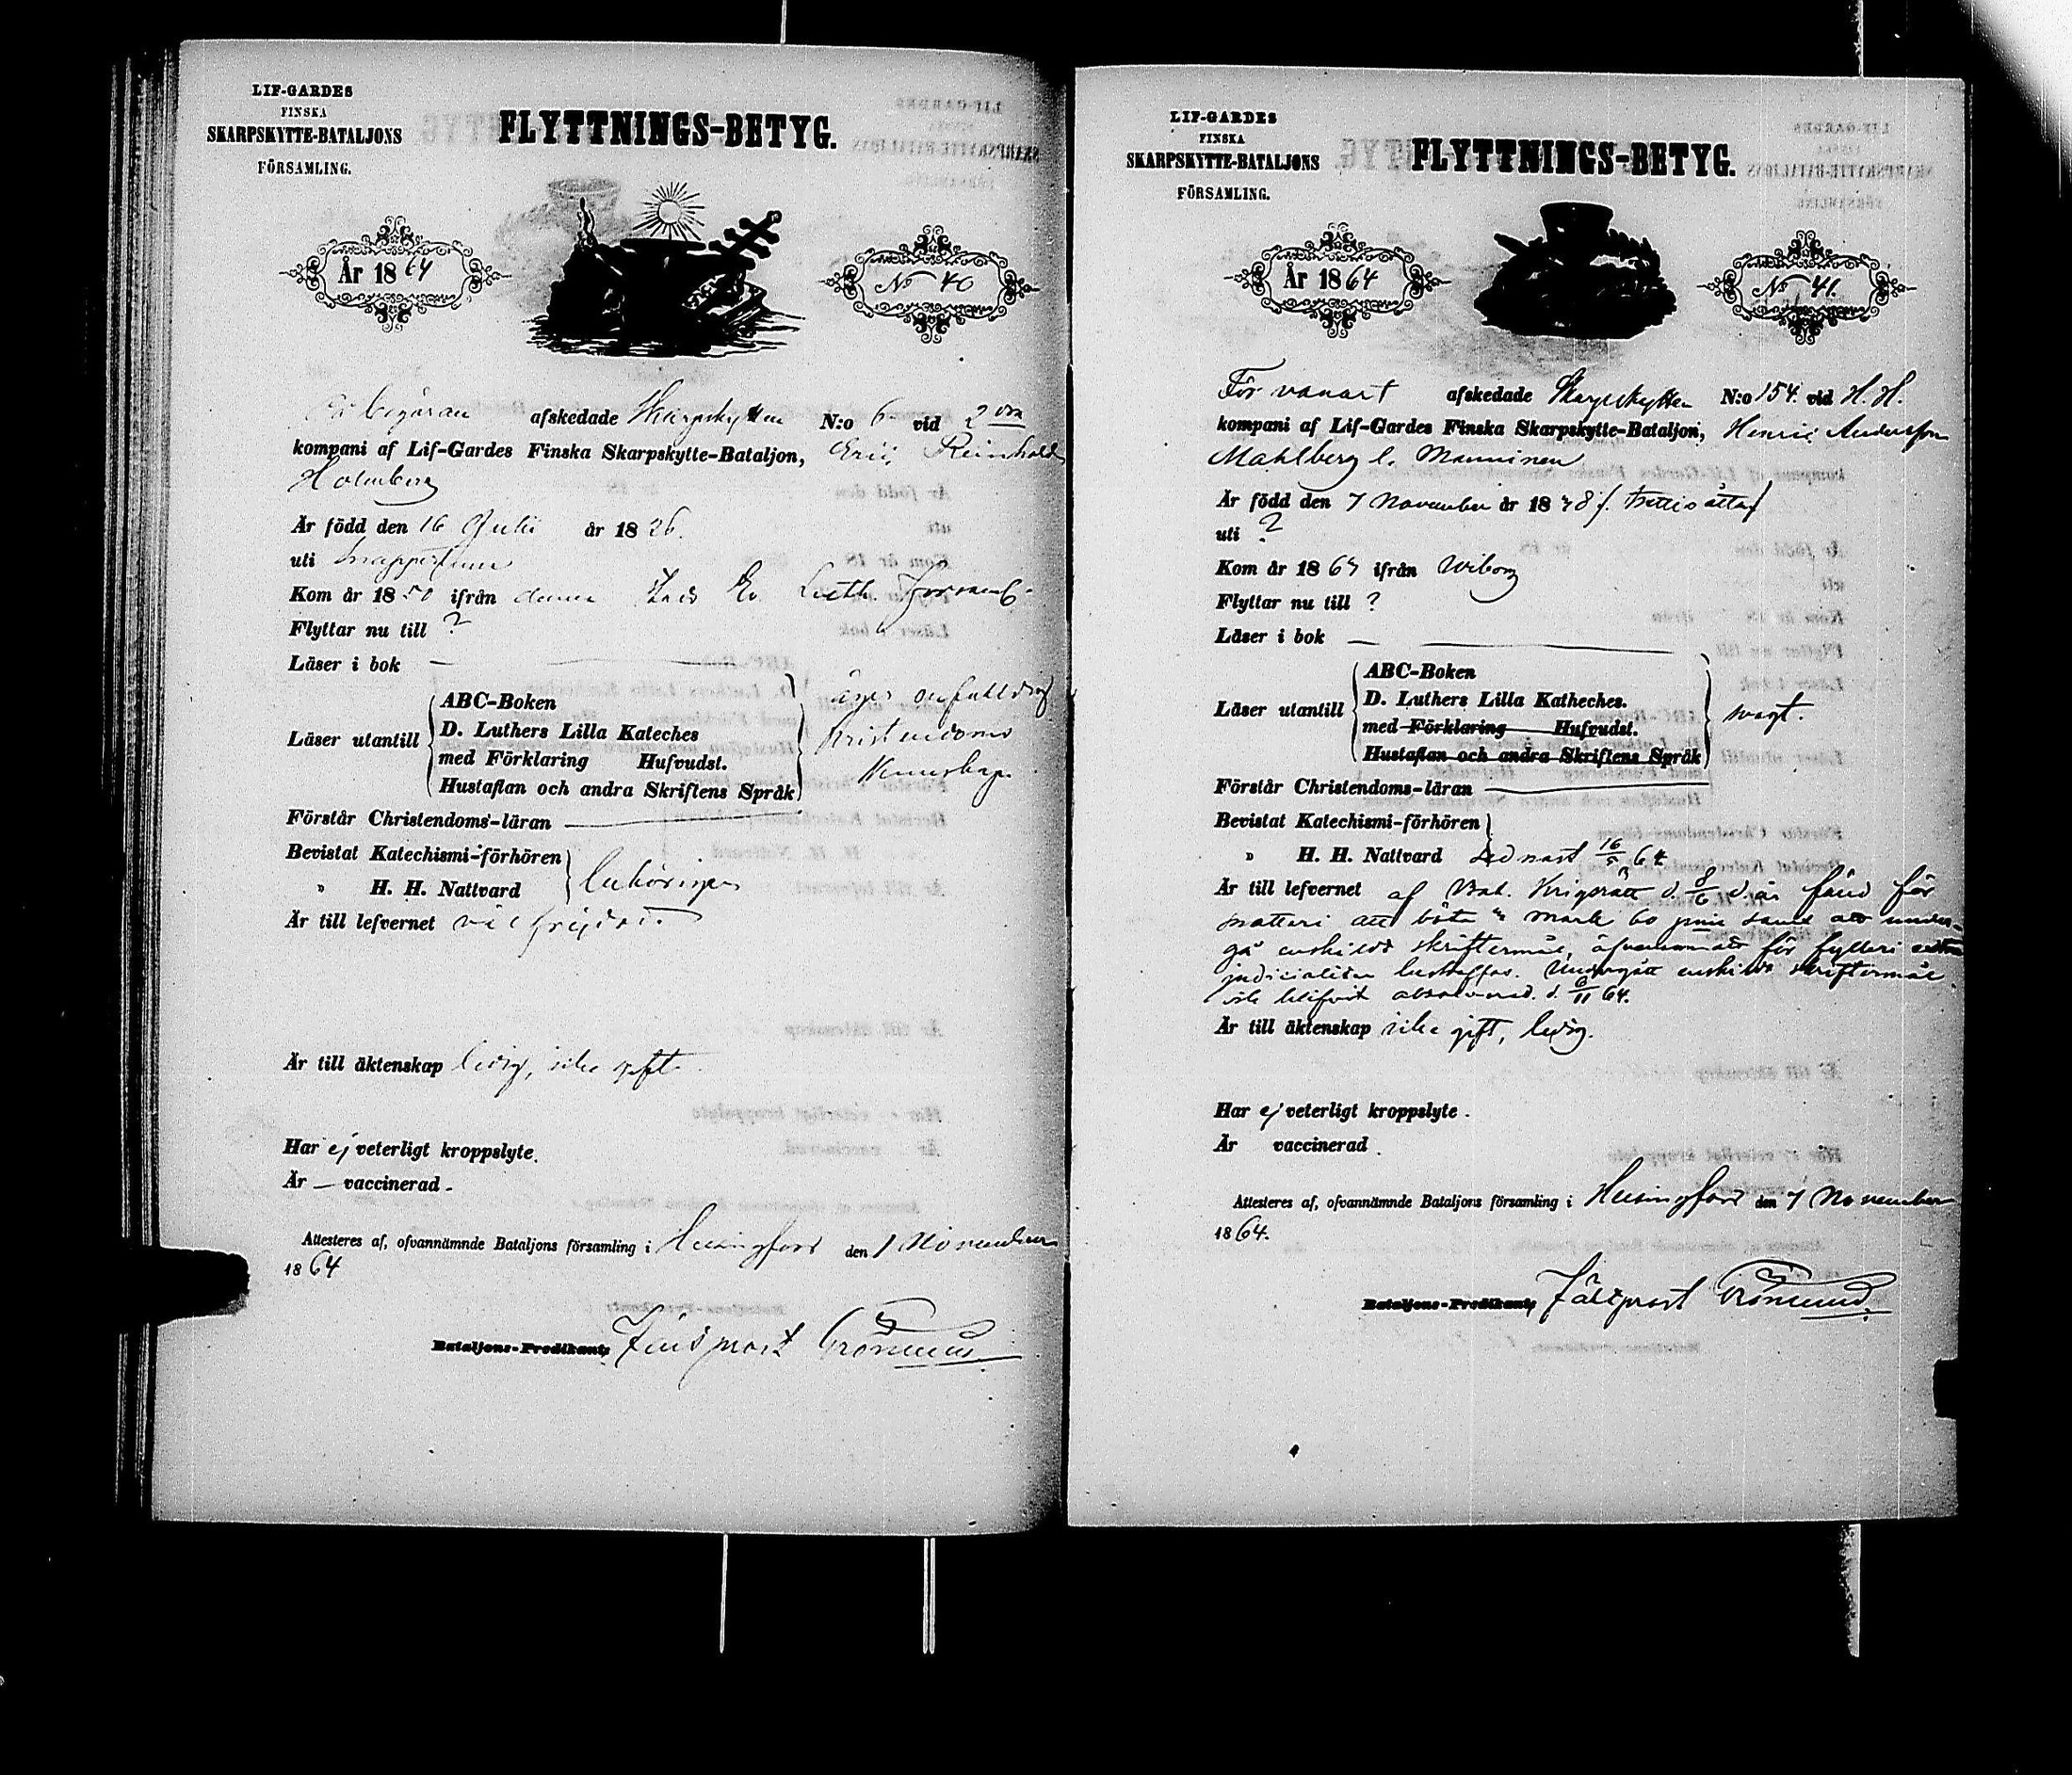 LIF-GARDES
FINSKA
SKARPSKYTTE-BATALJONS
FÖRSAMLING.
FLYTTNINGS-BETYG.
År 1864
No 40
begäran afskedade Skarpskytten N:o 6 vid 2dra
kompani af Lif-Gardes Finska Skarpskytte-Bataljon, Eric Reinhold
Holmberg
Är född den 16 Julii år 1826.
uti Snappertuna
Kom år 1850 ifrån denna Ev. Luth. Församl.
Flyttar nu till ?
Läser i bok —
Läser utantill
ABC-Boken
D. Luthers Lilla Kateches
med Förklaring Hufvudst.
Hustaflan och andra Skriftens Språk
äger
kristendoms
kunskap.
Förstår Christendoms-läran —
Bevistat Katechismi-förhören
" H. H. Nattvard
behörigen
Är till lefvernet väl frejdad.
Är till äktenskap ledig, icke gift.
Har ej veterligt kroppslyte.
Är — vaccinerad.
Attesteres af, ofvannämnde Bataljons församling i Helsingfors den 1 November
1864
Bataljons-Predikant, Fältprost
LIF-GARDES
FINSKA
SKARPSKYTTE-BATALJONS
FÖRSAMLING.
FLYTTNINGS-BETYG.
År 1864
No 41.
För vanart afskedade Skarpskytten N:o 154. vid H. H.
kompani af Lif-Gardes Finska Skarpskytte-Bataljon, Henric Andersson
Mahlberg l. Manninen
Är född den 7 November år 1838 f. trettioåtta f
uti ?
Kom år 1863 ifrån Wiborg
Flyttar nu till ?
Läser i bok —
Läser utantill
ABC-Boken
D. Luthers Lilla Katheches.
med Förklaring Hufvudst.
Hustaflan och andra Skriftens Språk
svagt.
Förstår Christendoms-läran —
Bevistat Katechismi-förhören
" H. H. Nattvard sednast 16/5 64
Är till lefvernet af Bat. Krigsrätt d. 8/6 d. år fälld för
snatteri att böta mark 60 pnni samt att under-
gå enskildt skriftermål, äfvensom för fylleri extra
judicialiter bestraffas. Undergått enskildt skriftermål
och blifvit absolverad d. 6/11 64.
Är till äktenskap icke gift, ledig.
Har ej veterligt kroppslyte.
Är vaccinerad.
Attesteres af, ofvannämnde Bataljons församling i Helsingfors den 7 November
1864.
Bataljons-Predikant, Fältprost